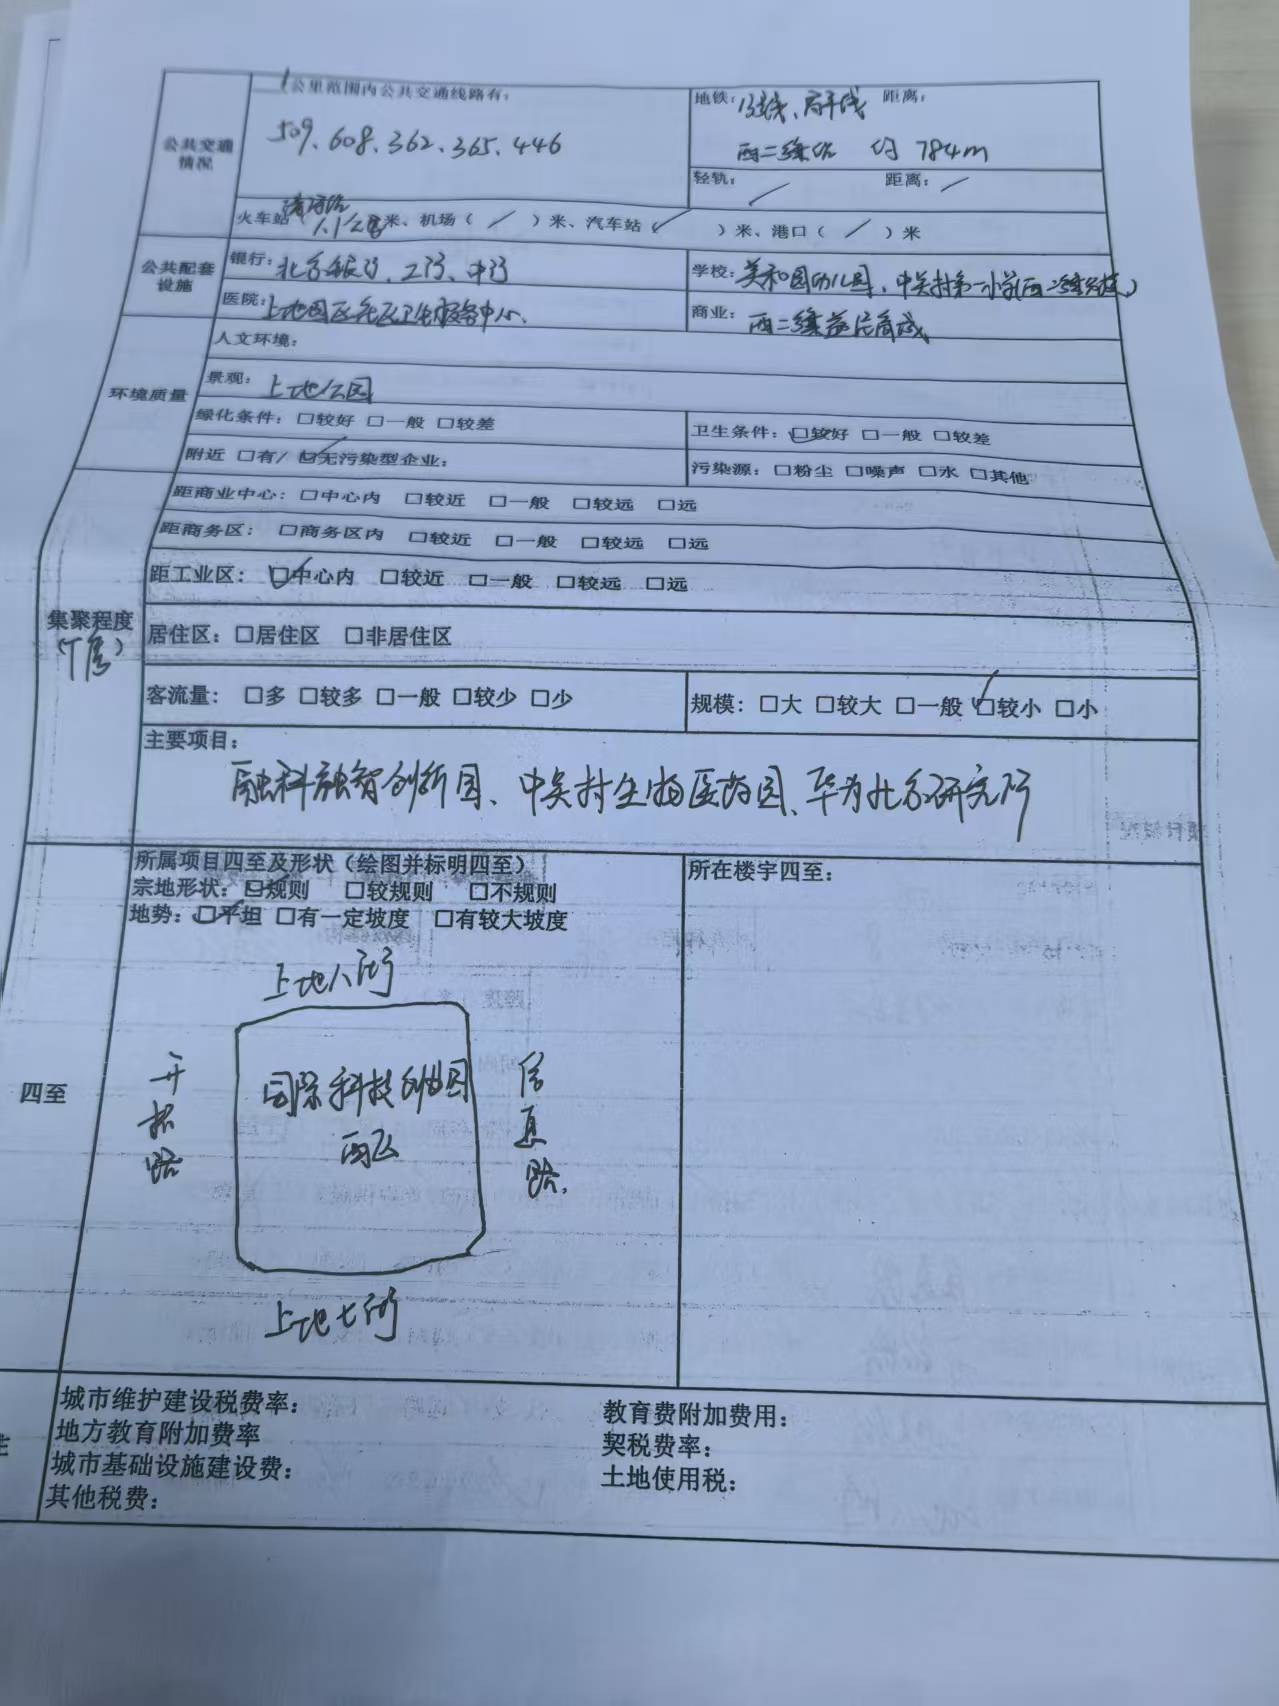 1公里范围内公共交通线路有：
509、608、362、365、446
地铁：13号线、昌平线 距离：
西二旗站 约784m
公共交通情况
轻轨：／ 距离：／
火车站 清河站 1.1公里米、机场（／）米、汽车站（／）米、港口（／）米
公共配套设施
银行：北京银行、工行、中行
学校：美和园幼儿园、中关村第一小学(西二旗分校)
医院：上地园区社区卫生服务中心、
商业：西二旗 商城
环境质量
人文环境：
景观：上地公园
绿化条件：□较好 □一般 □较差
卫生条件：☑较好 □一般 □较差
附近 □有/ ☑无污染型企业：
污染源：□粉尘 □噪声 □水 □其他
距商业中心：□中心内 □较近 □一般 □较远 □远
距商务区：□商务区内 □较近 □一般 □较远 □远
距工业区：☑中心内 □较近 □一般 □较远 □远
集聚程度
居住区：□居住区 □非居住区
(厂房)
客流量：□多 □较多 □一般 □较少 □少
规模：□大 □较大 □一般 ☑较小 □小
主要项目：
融科融智创新园、中关村生物医药园、华为北京研究所
四至
所属项目四至及形状（绘图并标明四至）
宗地形状：☑规则 □较规则 □不规则
地势：☑平坦 □有一定坡度 □有较大坡度
所在楼宇四至：
上地八街
开拓路
国际科技创业园
西区
信息路
上地七街
城市维护建设税费率：
教育费附加费用：
地方教育附加费率
契税费率：
城市基础设施建设费：
土地使用税：
其他税费：